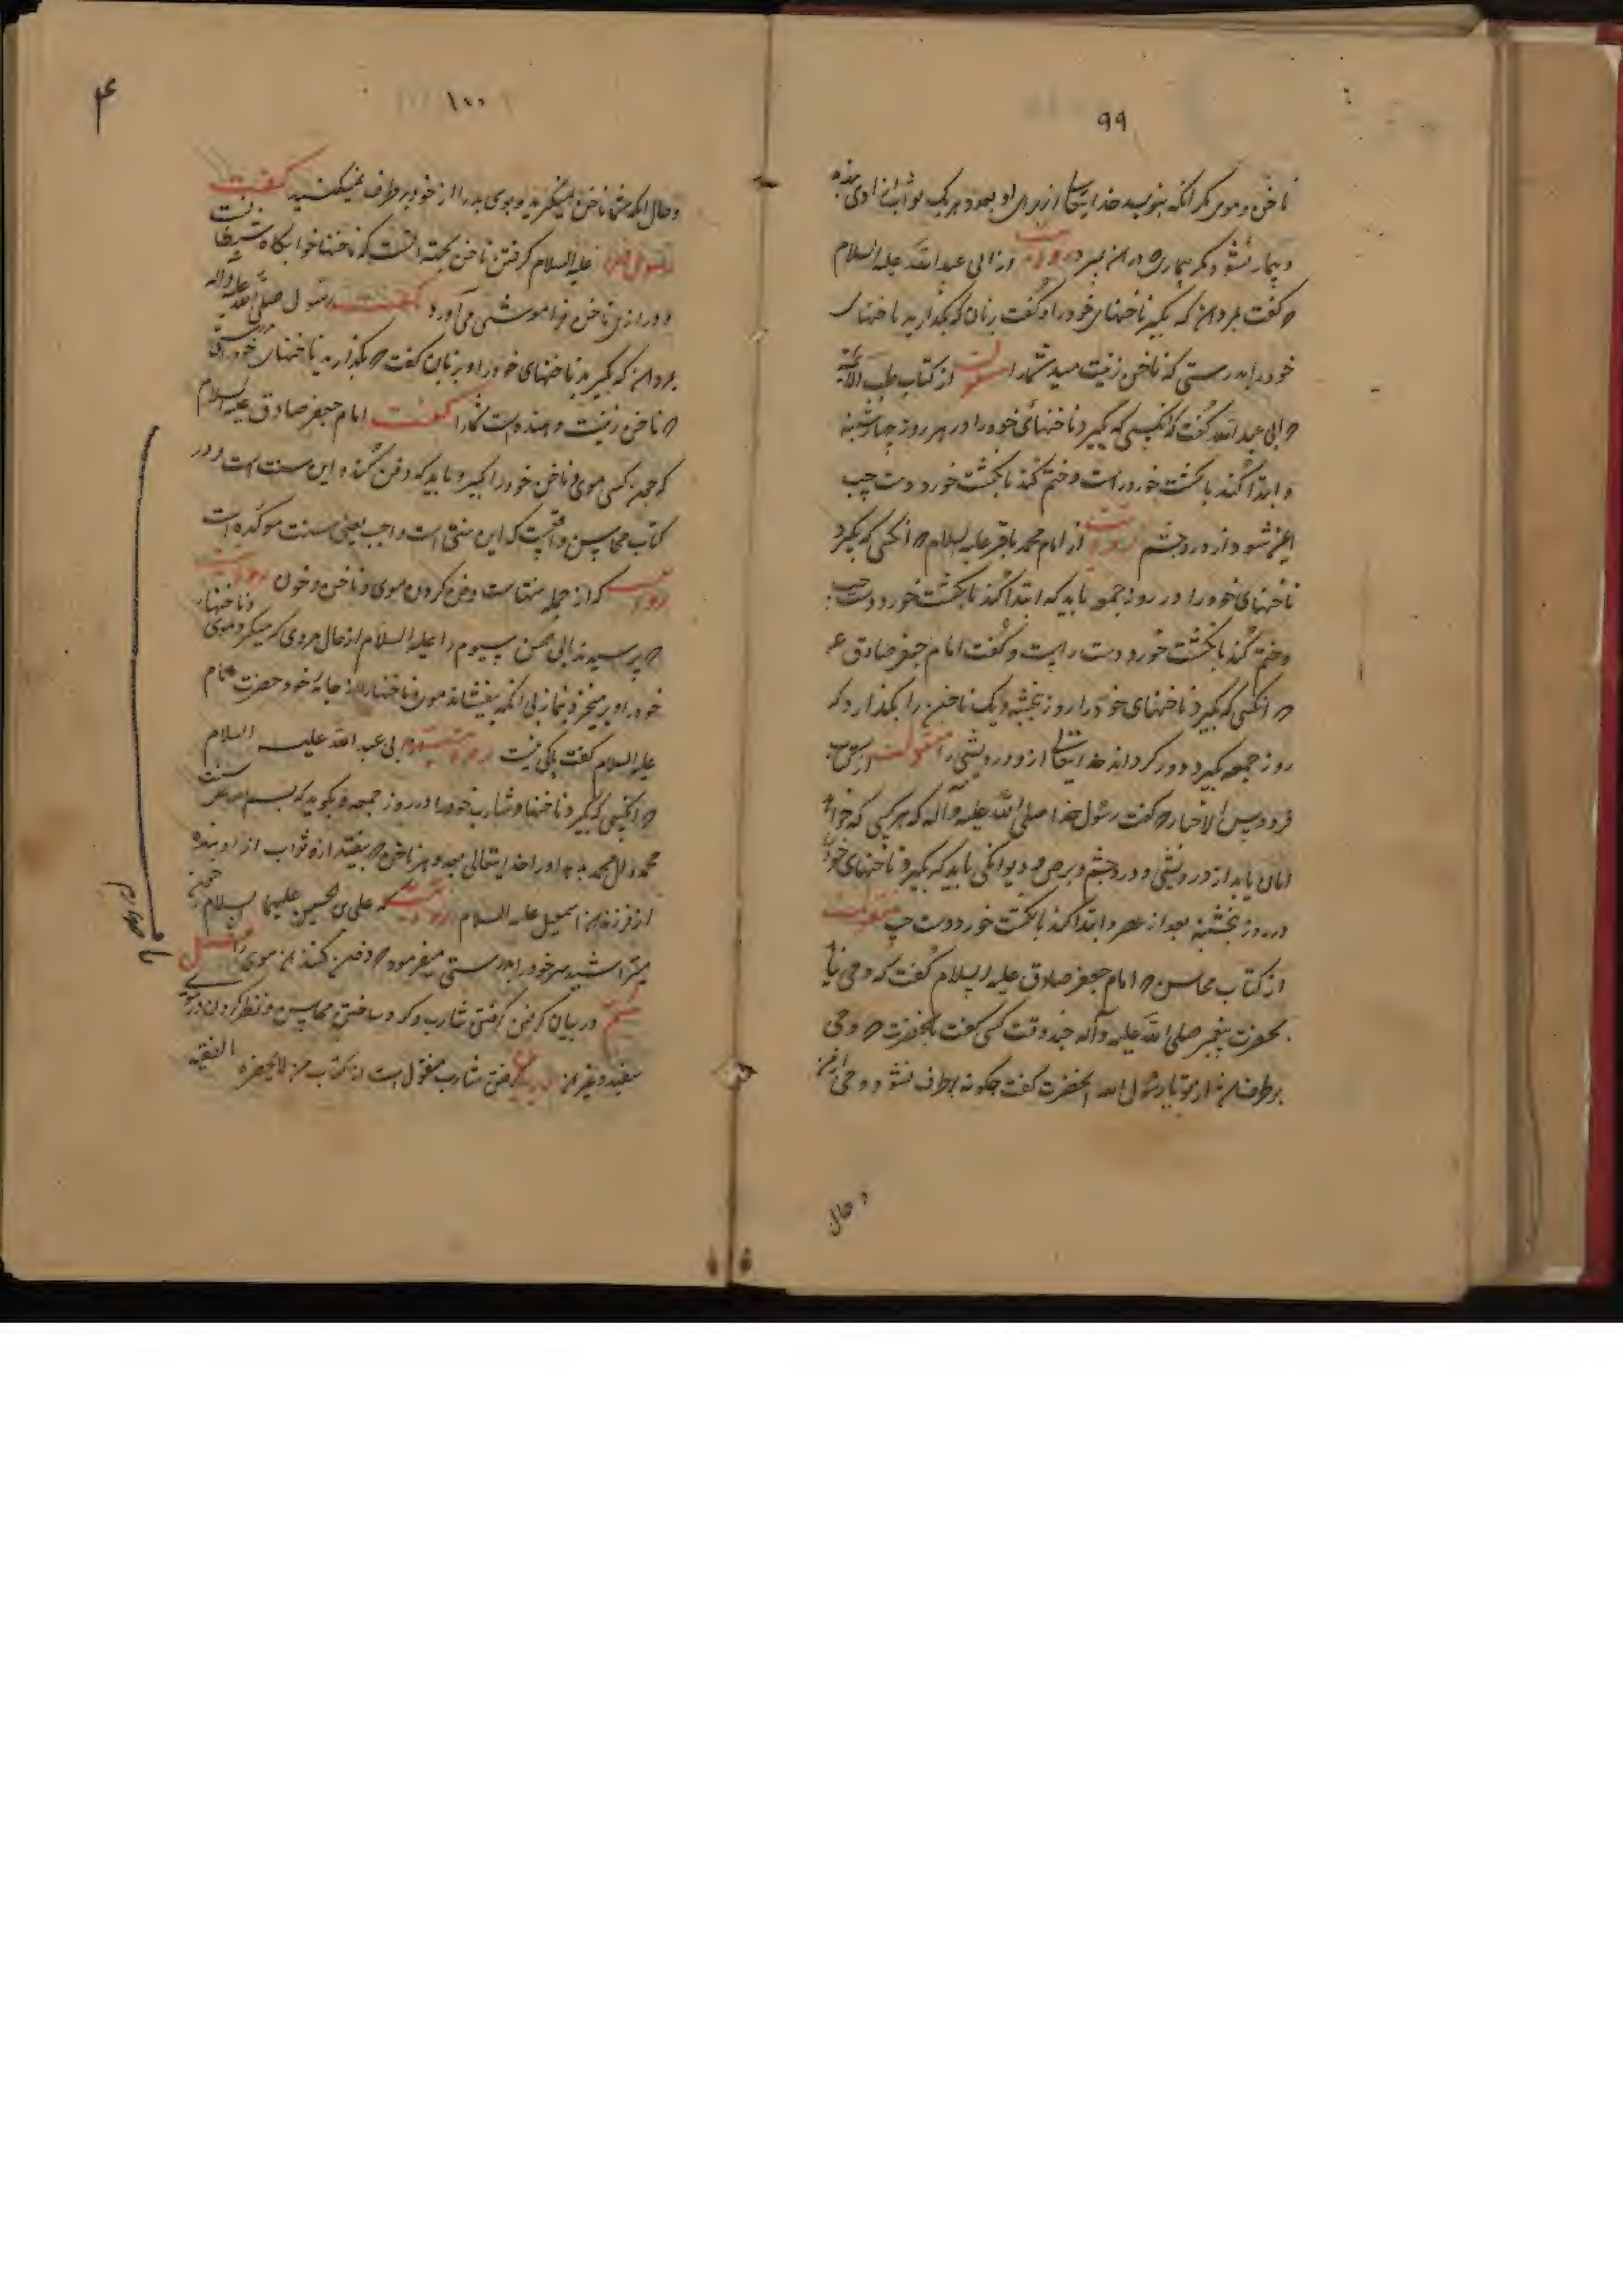 ٩٩
ناخن و موی مگر آنکه بنویسد خدایتعالی از برای او بعدد هر یک ثواب آزادی بنده
و بیمار نشود مگر بیماری که در آن بمیرد روایت از ابی عبد الله علیه السلام
که گفت بمردان که بگیرید ناخنهای خود را و گفت بزنان که بگذارید ناخنهای
خود را بدرستی که ناخن زینت میدهد شما را منقولست از کتاب طب الائمه
که ابی عبد الله گفت که آنکسی که بگیرد ناخنهای خود را در هر روز چهارشنبه
و ابتدا کند بانگشت خورد راست و ختم کند بانگشت خورد دست چپ
ایمن شود از درد چشم روایت از امام محمد باقر علیه السلام که آنکسی که بگیرد
ناخنهای خود را در روز جمعه باید که ابتدا کند بانگشت خورد دست چپ
و ختم کند بانگشت خورد دست راست و گفت امام جعفر صادق ع
که آنکسی که بگیرد ناخنهای خود را روز پنجشنبه و یک ناخن را بگذارد که
روز جمعه بگیرد دور گرداند خدایتعالی از و درویشی را منقولست از کتاب
فردوس الاخبار که گفت رسول خدا صلی الله علیه وآله که هر کسی که خواهد
امان یابد از درویشی و درد چشم و برص و دیوانگی باید که بگیرد ناخنهای خود را
در روز پنجشنبه بعد از عصر و ابتدا کند بانگشت خورد دست چپ منقولست
از کتاب محاسن که امام جعفر صادق علیه السلام گفت که وحی نیامد
بحضرت پیغمبر صلی الله علیه وآله چند وقت کسی گفت بآنحضرت که وحی
برطرف شد از تو یا رسول الله آنحضرت گفت چگونه برطرف نشود وحی از من
و حال
١٠٠
و حال آنکه شما ناخن نمیگیرید و بوی بد را از خود برطرف نمیکنید گفت
رسول خدا علیه السلام گرفتن ناخن بجهة آنست که ناخنها خوابگاه شیطانست
و درازی ناخن فراموشی می آورد گفت رسول صلی الله علیه واله
بمردان که بگیرید ناخنهای خود را و بزنان گفت که بگذارید ناخنهای خود را بدرستی
که ناخن زینت دهنده است شما را گفت امام جعفر صادق علیه السلام
که چون کسی موی و ناخن خود را بگیرد باید که دفن کند و این سنت است و در
کتاب محاسن واقعست که این سنتی است واجب یعنی سنت موکده است
روایت که از جمله سنتهاست دفن کردن موی و ناخن و خون روایت
که پرسیدند ابی الحسن سیوم را علیه السلام از حال مردی که میگیرد موی و ناخنهای
خود را و برمیخیزد بنماز بی آنکه بیفشاند موی و ناخنها را از جامهٔ خود حضرت امام
علیه السلام گفت باکی نیست روایت از ابی عبد الله علیه السلام
که آنکسی که بگیرد ناخنها و شارب خود را در روز جمعه و بگوید که بسم الله علی سنت
محمد وآل محمد بدهد او را خدایتعالی بعدد هر ناخن که بیفتد از و ثواب آزاد بنده
از فرزندان اسمعیل علیه السلام روایت که علی بن الحسین علیهما السلام چون
میتراشید سر خود را بدرستی میفرمود که دفن کنند آن موی را فصل
ششم در بیان گرفتن شارب و گرد ساختن محاسن و نظر کردن در موی
سفید و غیر آن گرفتن شارب منقول است از کتاب من لا یحضره الفقیه